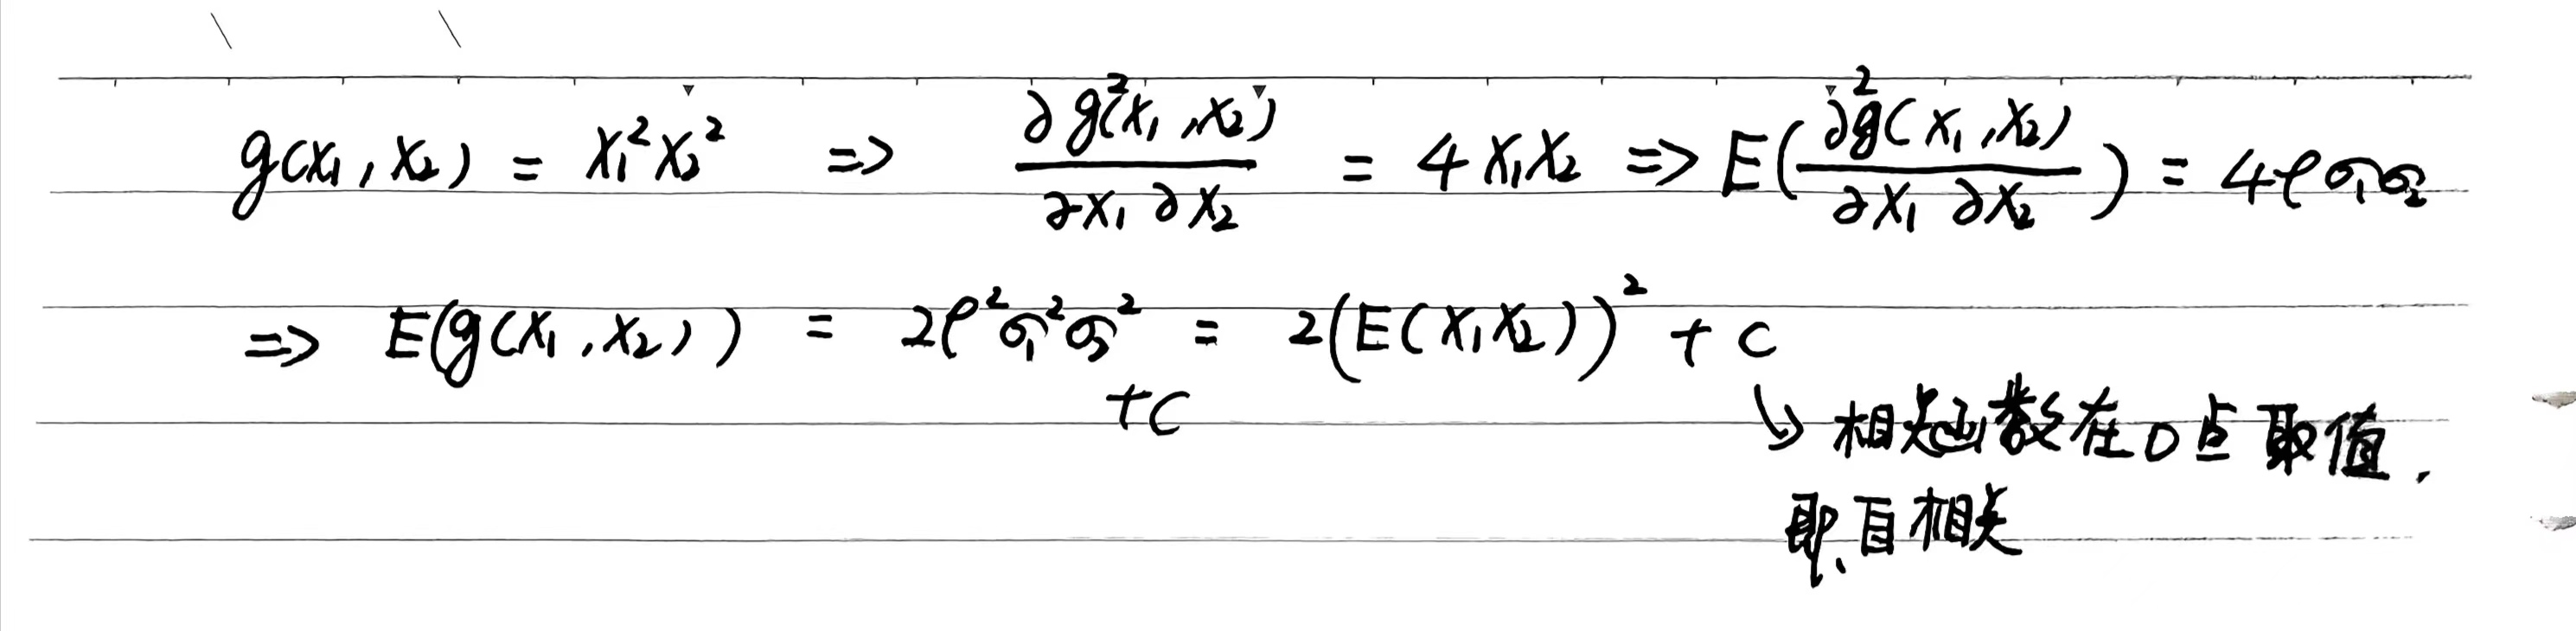 g(x₁, x₂) = x₁²x₂² => ∂g²(x₁, x₂) / ∂x₁∂x₂ = 4x₁x₂ => E(∂²g(x₁, x₂) / ∂x₁∂x₂) = 4ρσ₁σ₂
=> E(g(x₁, x₂)) = 2ρ²σ₁²σ₂² + C = 2(E(x₁x₂))² + C
↳ 相关函数在0点取值,
即自相关